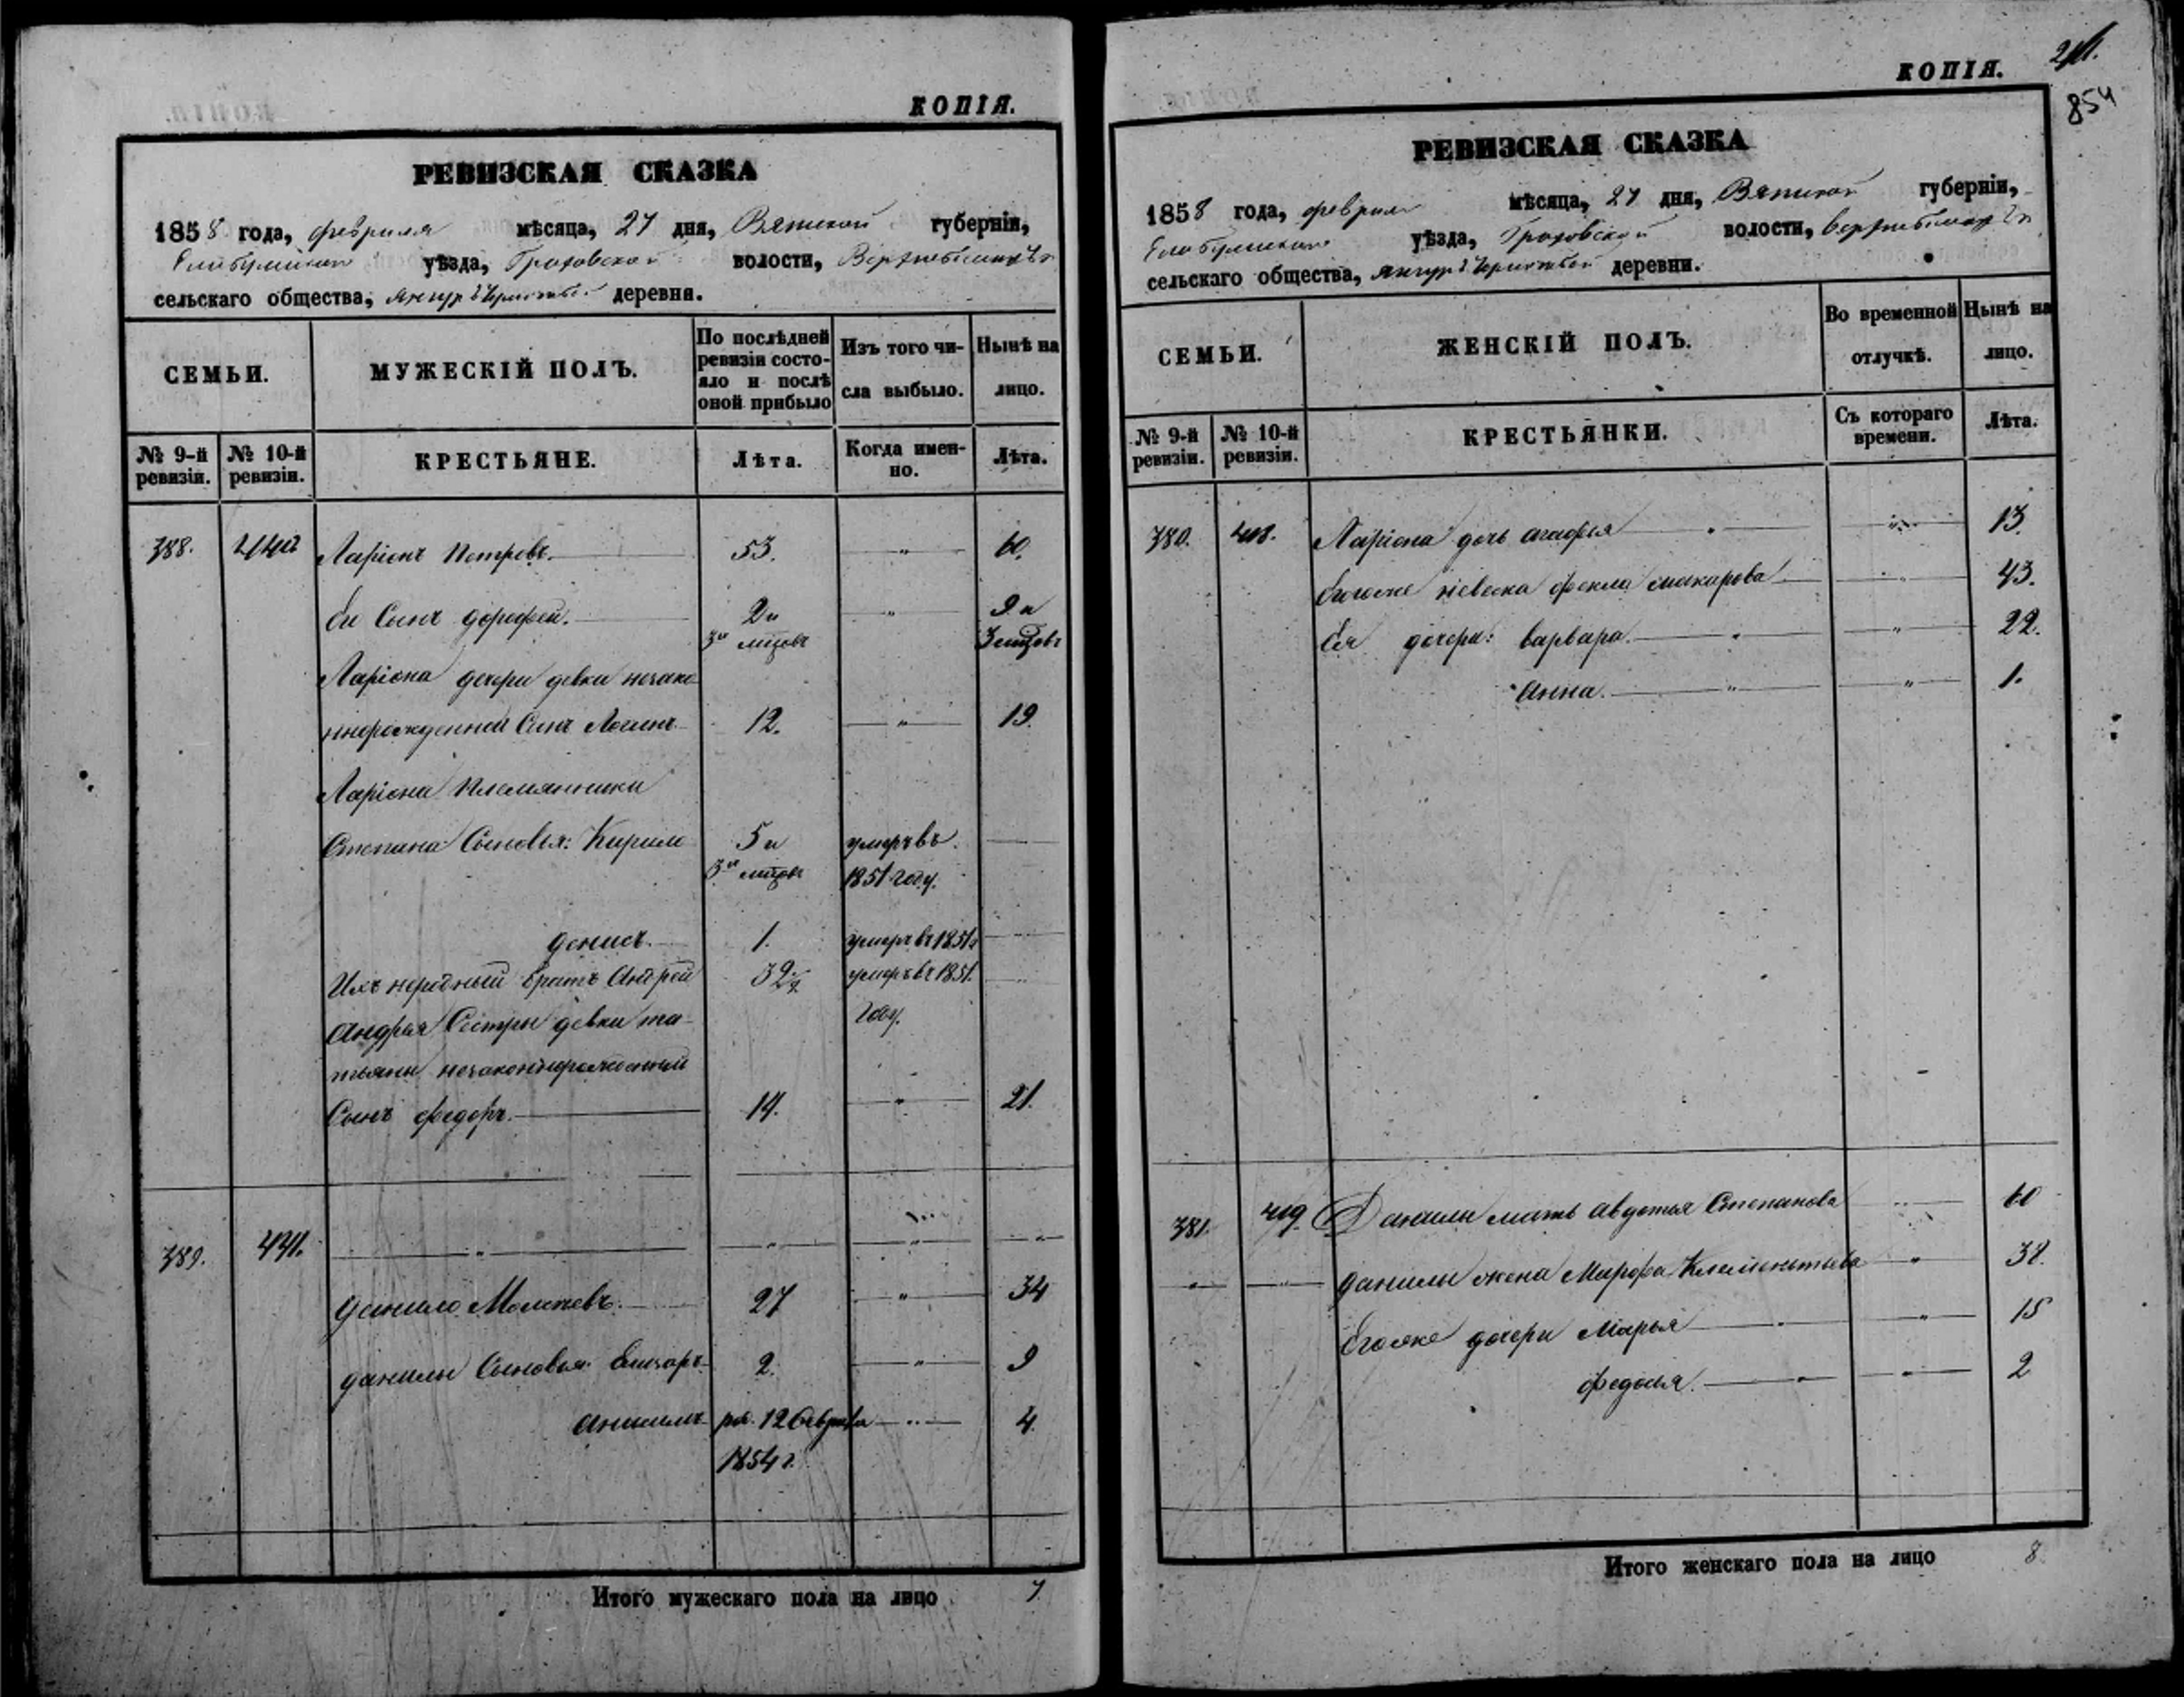 КОПІЯ.
РЕВИЗСКАЯ СКАЗКА
1858 года, февраля мѣсяца, 27 дня, Вятской губерніи,
уѣзда, Граховской волости,
сельскаго общества, деревня.
СЕМЬИ.
МУЖЕСКІЙ ПОЛЪ.
По послѣдней
ревизіи состо-
яло и послѣ
оной прибыло
Изъ того чи-
сла выбыло.
Нынѣ на
лицо.
№ 9-й
ревизіи.
№ 10-й
ревизіи.
КРЕСТЬЯНЕ.
Лѣта.
Когда имен-
но.
Лѣта.
388. Ларіонъ Петровъ. 53. " 60.
Сынъ дорофей. 2 и " 9 и
3 3
Ларіона дочери девки незако
ннорожденной Сынъ Логинъ 12. " 19.
Ларіона племянники
Степана Сыновья: Кирило 5 и умеръ въ
1851 году.
денисъ. 1. умеръ въ 1851
Ихъ неродный братъ Андрей умеръ въ 1851.
году.
Андрея Сестры девки та-
тьяны незаконнорожденный
Сынъ федоръ. 14. " 21.
389. " " " "
данило 27 " 34
данилы Сыновья: 2. " 9
рж. 12 4.
1854 г.
Итого мужескаго пола на лицо 7.
КОПІЯ.
854
РЕВИЗСКАЯ СКАЗКА
1858 года, февраля мѣсяца, 27 дня, Вятской губерніи,
уѣзда, Граховской волости,
сельскаго общества, деревни.
СЕМЬИ.
ЖЕНСКІЙ ПОЛЪ.
Во временной
отлучкѣ.
Нынѣ на
лицо.
№ 9-й
ревизіи.
№ 10-й
ревизіи.
КРЕСТЬЯНКИ.
Съ котораго
времени.
Лѣта.
380. 418. Ларіона дочь агафья " 13.
Егоже невеска фекла макарова " 43.
Ея дочери: варвара. " " 22.
Анна. " " 1.
381. 419. Данилы мать авдотья Степанова 60
" данилы жена Марфа Клементьева " 38.
Егоже дочери Марья " " 15
федосья. " " 2
Итого женскаго пола на лицо 8.